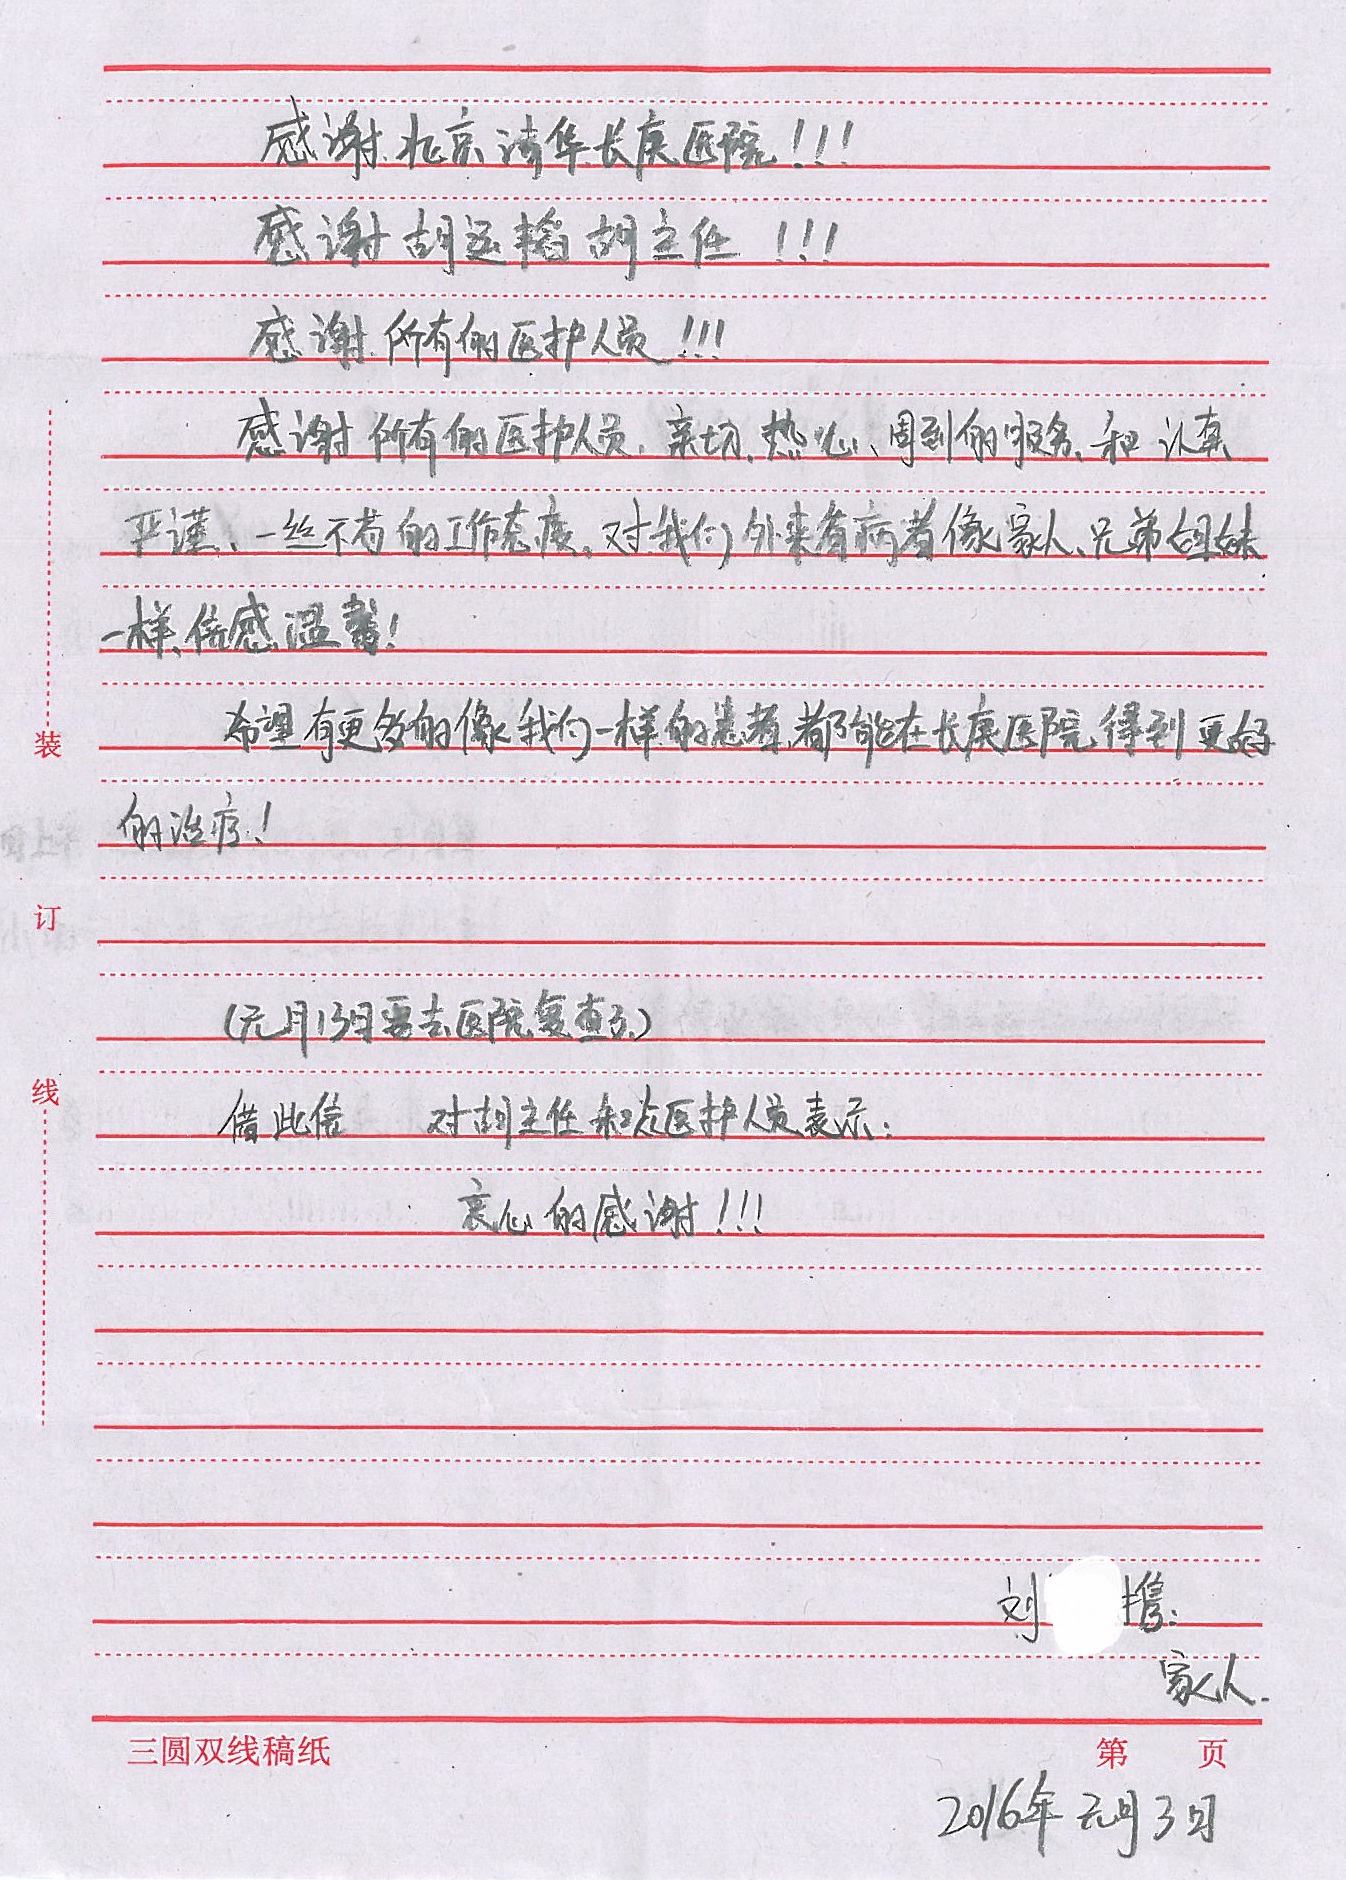 感谢北京清华长庚医院!!!
感谢胡运韬胡主任!!!
感谢所有的医护人员!!!
感谢所有的医护人员,亲切、热心、周到的服务、和认真
严谨、一丝不苟的工作态度。对我们外来看病者像家人、兄弟姐妹
一样、倍感温馨!
希望有更多的像我们一样的患者,都能在长庚医院得到更好
的治疗!
装
订
(元月13日要去医院复查了、)
线
借此信 对胡主任和众医护人员表示:
衷心的感谢!!!
刘 携:
家人.
三圆双线稿纸 第 页
2016年元月3日